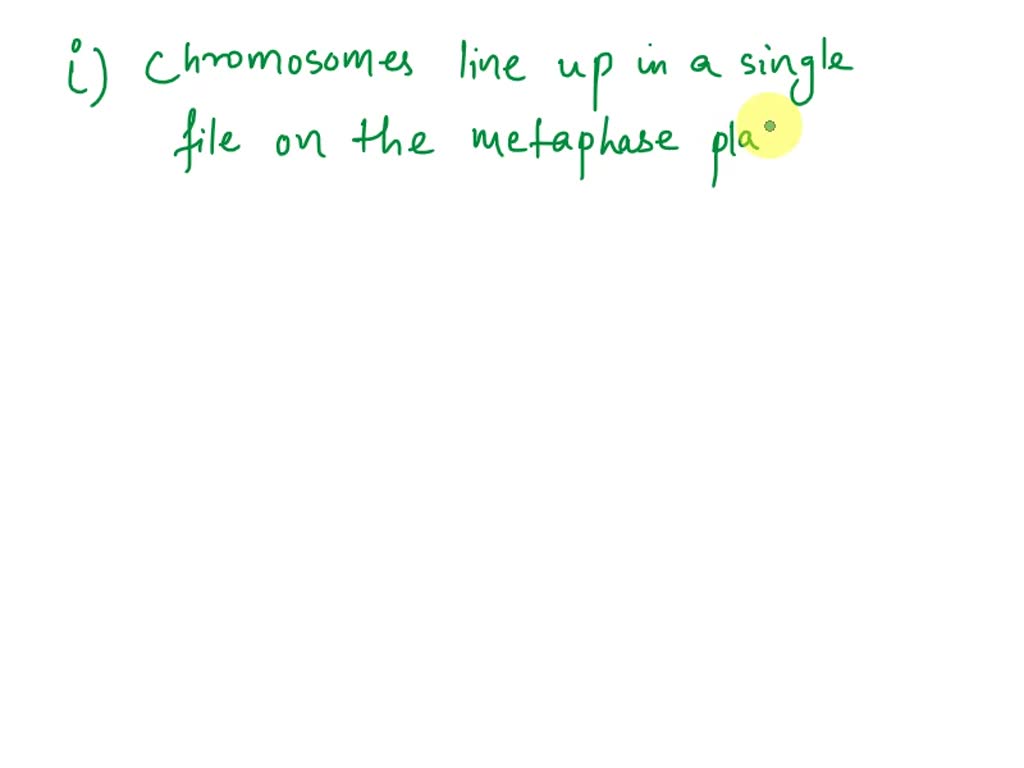 i) Chromosomes line up in a single
file on the metaphase pla